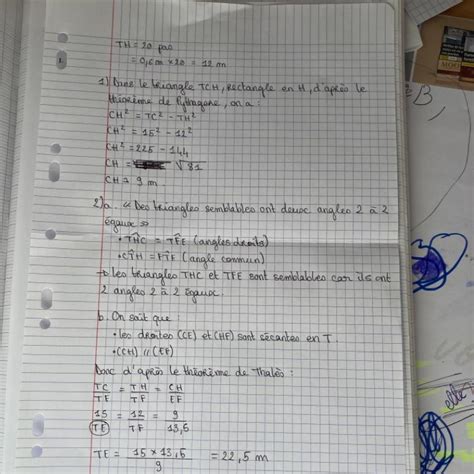 TH = 20 pas
= 0,6 m × 20 = 12 m
1) Dans le triangle TCH, rectangle en H, d'après le
théorème de Pythagore, on a :
CH² = TC² - TH²
CH² = 15² - 12²
CH² = 225 - 144
CH = √81
CH = 9 m.
2)a. « Des triangles semblables ont deux angles 2 à 2
égaux »
• T͡HC = T͡FE (angles droits)
• C͡TH = F͡TE (angle commun)
→ Les triangles THC et TFE sont semblables car ils ont
2 angles 2 à 2 égaux.
b. On sait que :
• les droites (CE) et (HF) sont sécantes en T.
• (CH) // (EF)
Donc d'après le théorème de Thalès :
TC/TE = TH/TF = CH/EF
15/TE = 12/TF = 9/13,5
TE = 15 × 13,5 / 9 = 22,5 m